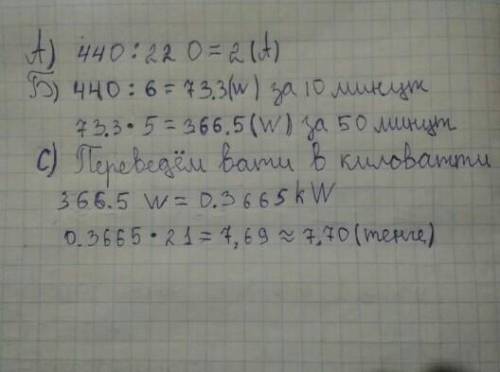 А) 440:220=2(А)
Б) 440:6=73.3(W) за 10 минут
73.3·5=366.5(W) за 50 минут
С) Переведём вати в киловатти
366.5 W=0.3665kW
0.3665·21=7,69≈7,70(тенге)